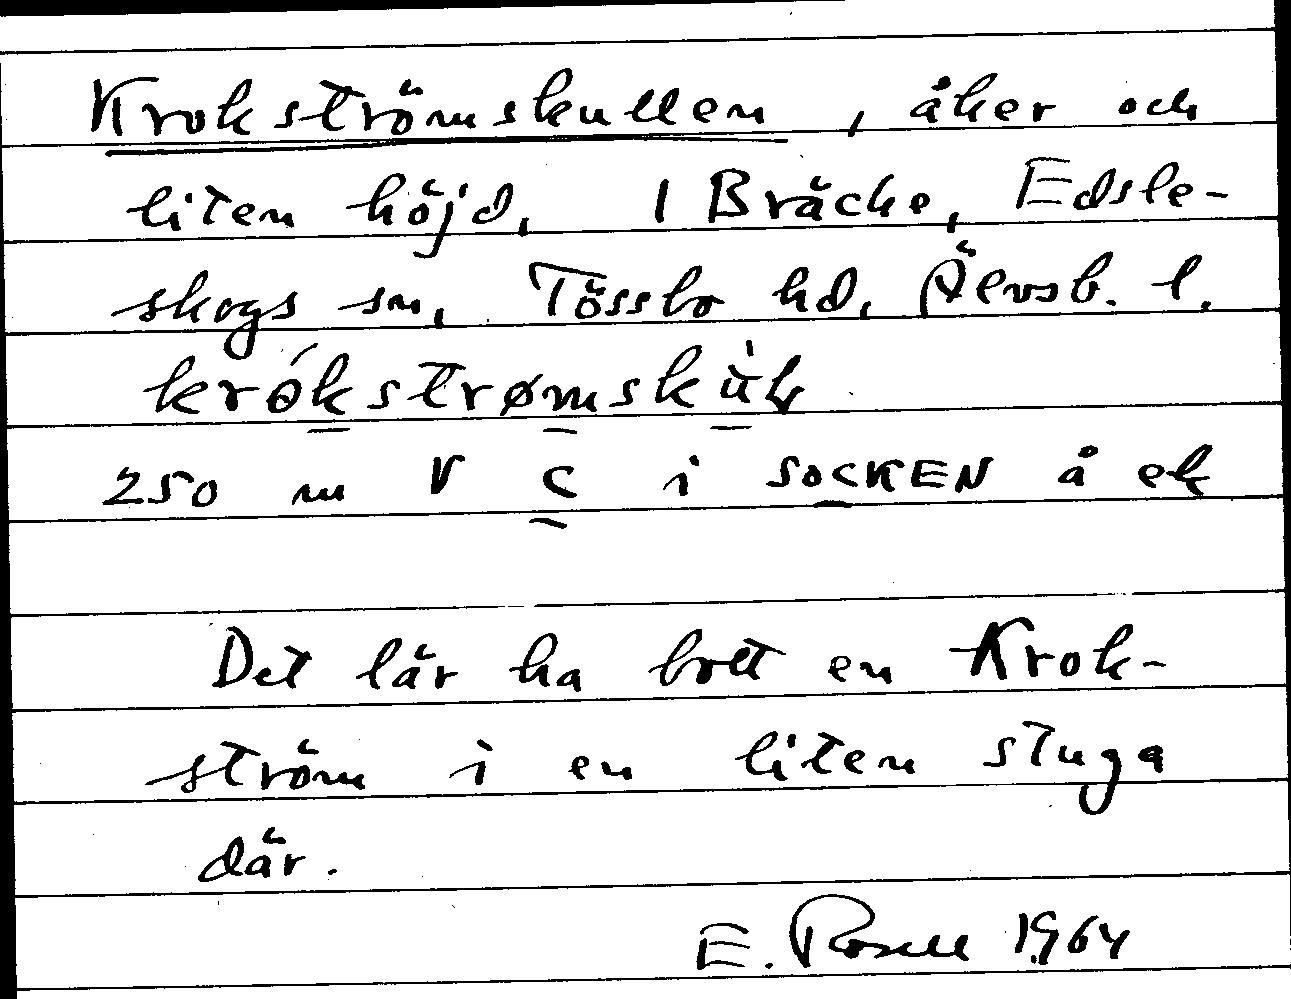 Krokströmskullen, åker och
liten höjd, 1 Bräcke, Edsle-
skogs sn, Tössbo hd, Älvsb. l.
250 m V C i SOCKEN å ek
Det lär ha bott en Krok-
ström i en liten stuga
där.
E. Rosell 1964